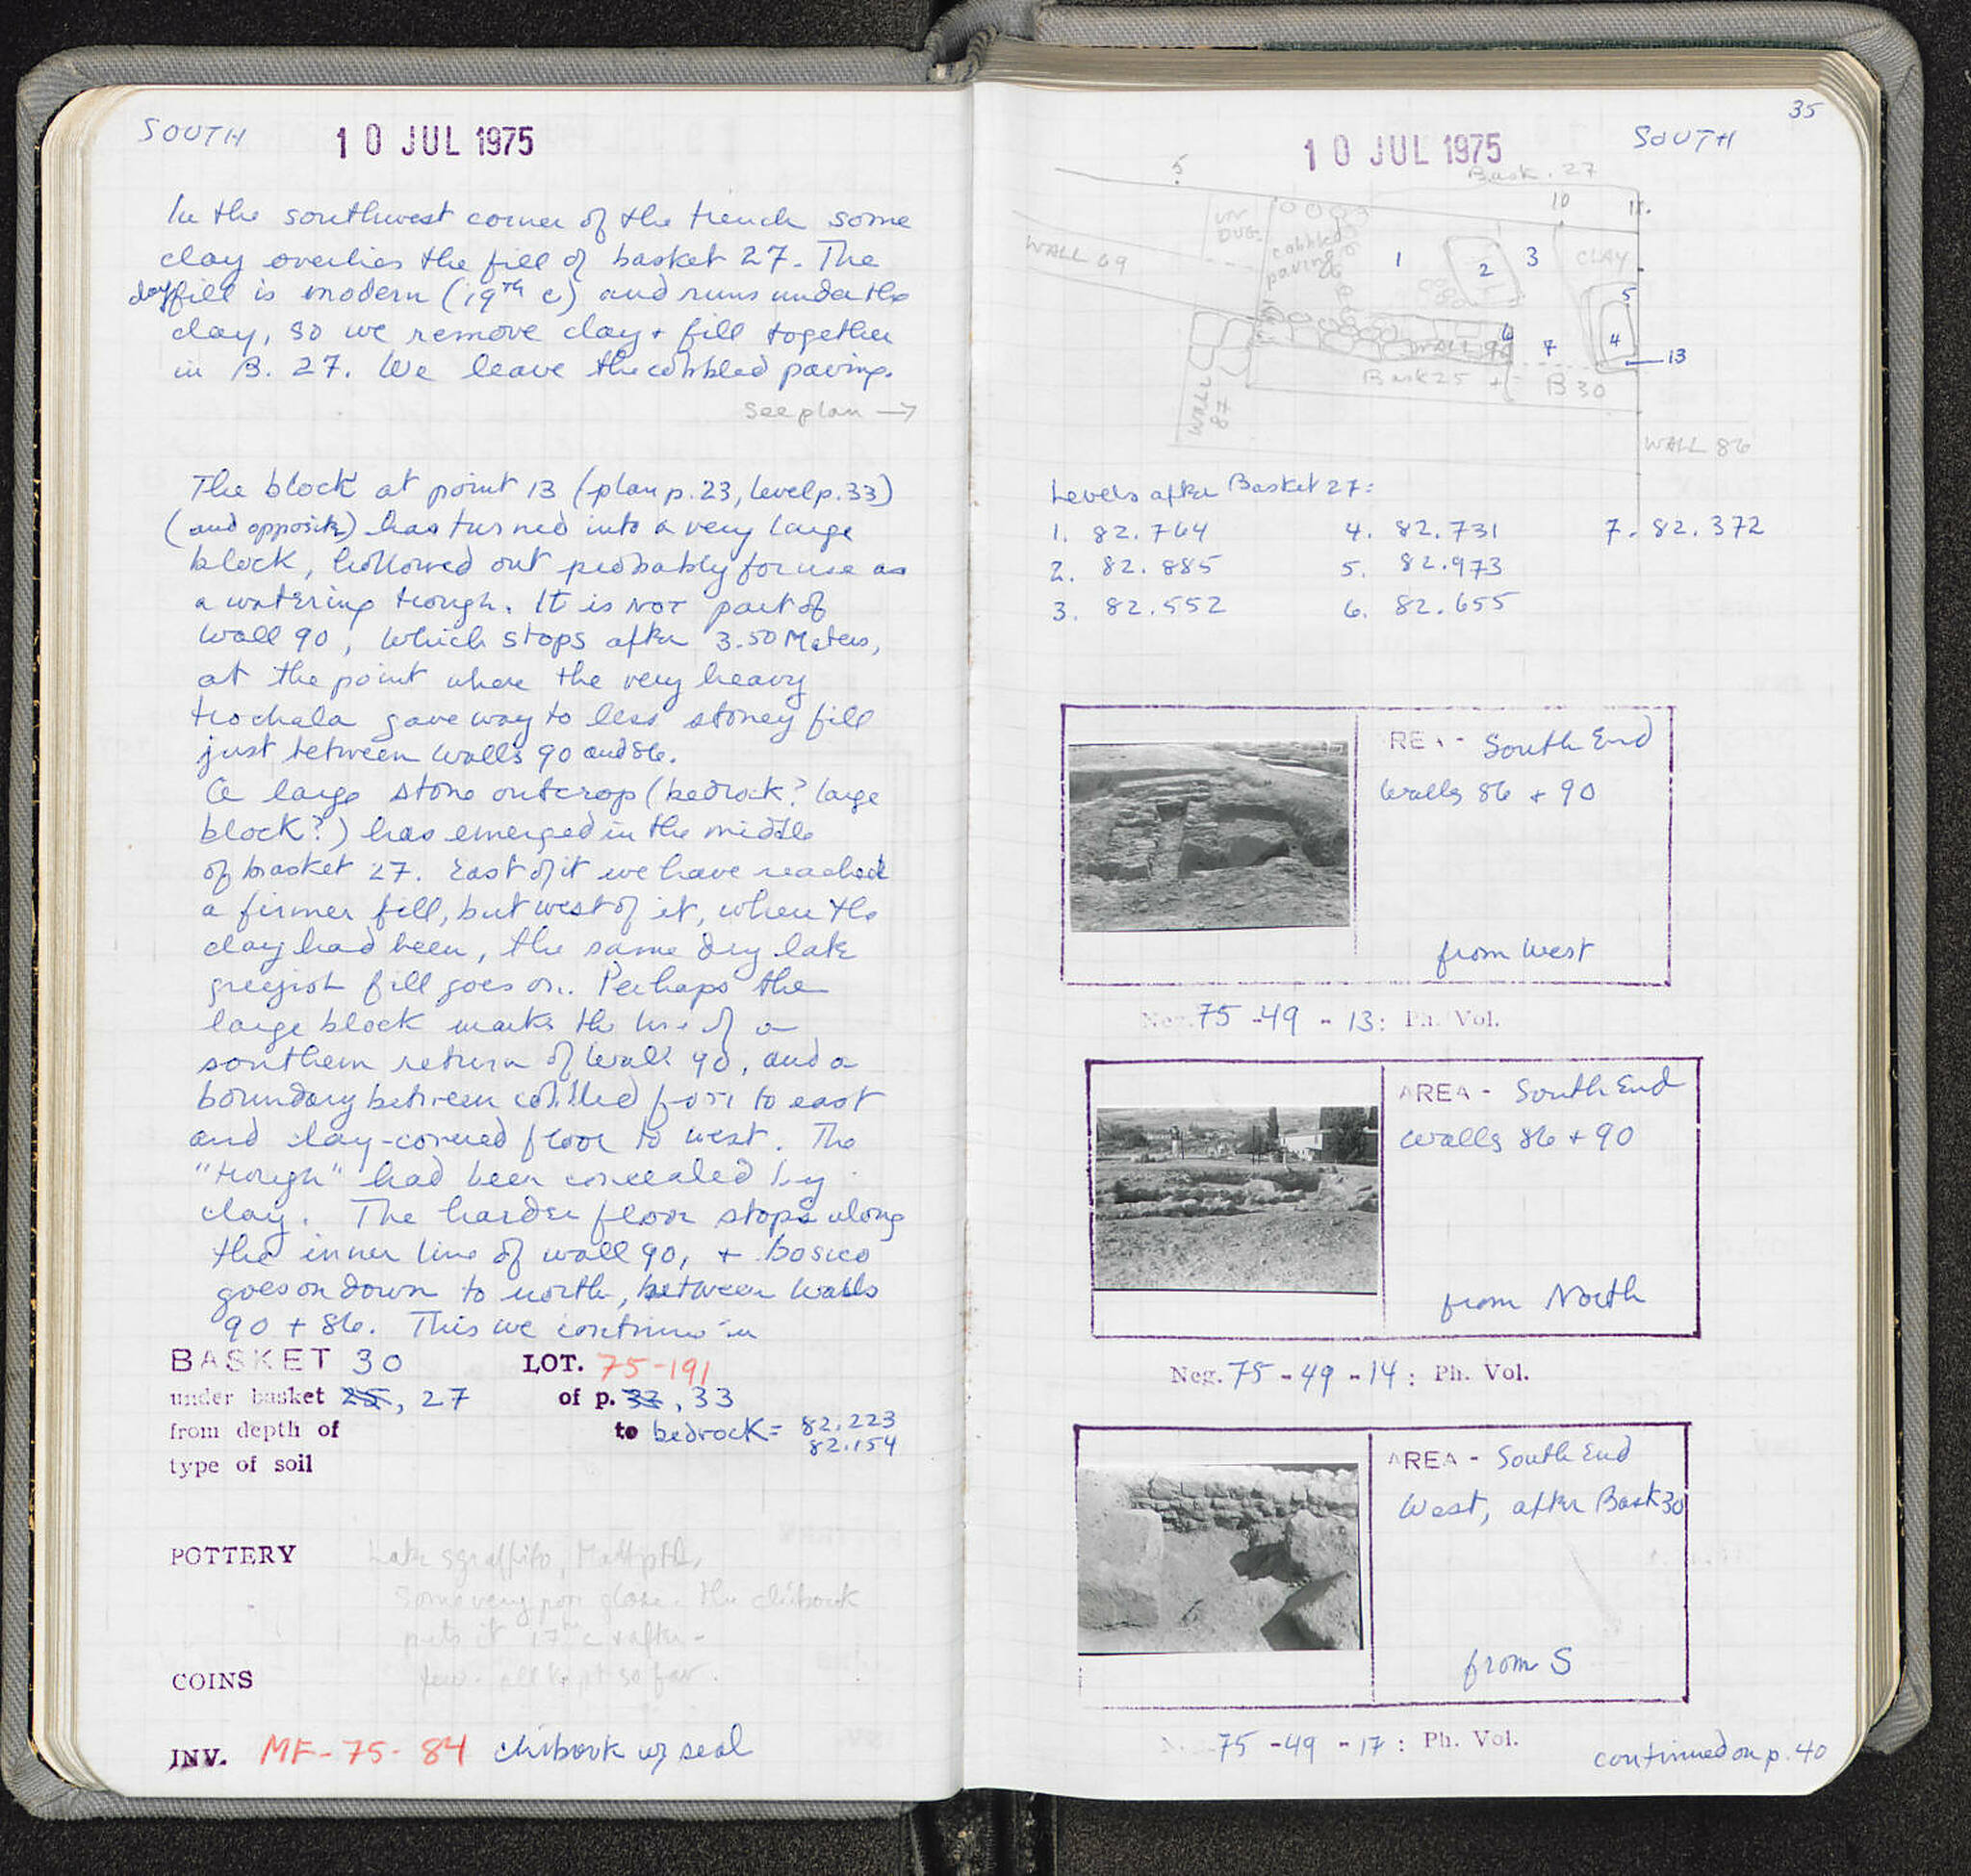 SOUTH
10 JUL 1975
In the southwest corner of the trench some
clay overlies the fill of basket 27. The
fill is modern (19th c) and runs under the
clay, so we remove clay + fill together
in B. 27. We leave the cobbled paving.
see plan →
The block at point 13 (plan p. 23, level p. 33)
(and opposite) has turned into a very large
block, hollowed out probably for use as
a watering trough. It is NOT part of
Wall 90, which stops after 3.50 Meters,
at the point where the very heavy
trochala gave way to less stoney fill
just between walls 90 and 86.
A large stone outcrop (bedrock? large
block?) has emerged in the middle
of basket 27. East of it we have reached
a firmer fill, but west of it, where the
clay had been, the same dry late
greyish fill goes on. Perhaps the
large block marks the line of a
southern return of Wall 90, and a
boundary between cobbled floor to east
and clay-covered floor to west. The
"trough" had been concealed by
clay. The harder floor stops along
the inner line of wall 90, + bosico
goes on down to north, between walls
90 + 86. This we continue in
BASKET 30 LOT. 75-191
under basket 25, 27 of p. 33, 33
from depth of to bedrock = 82.223
82.154
type of soil
POTTERY Late sgraffito, Matt ptd,
some very poor glaze. The chibouk
puts it 17th c + after -
few - all kept so far.
COINS
INV. MF-75-84 chibouk w/ seal
35
10 JUL 1975
SOUTH
Bask. 27
5
10
11.
UN
DUG.
cobbled
paving
WALL 69
1
2
3
CLAY
5
4
6
7
13
WALL 90
Bask 25
B 30
WALL
87
WALL 86
Levels after Basket 27:
1. 82.764 4. 82.731 7. 82.372
2. 82.885 5. 82.973
3. 82.552 6. 82.655
REA - South End
Walls 86 + 90
from West
Neg. 75-49-13: Ph. Vol.
AREA - South End
walls 86 + 90
from North
Neg. 75-49-14: Ph. Vol.
AREA - South End
West, after Bask 30
from S
75-49-17: Ph. Vol.
continued on p. 40